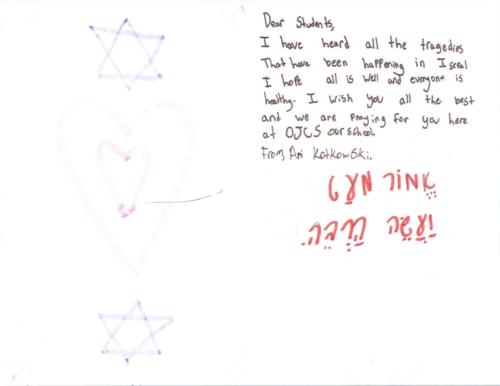 Dear Students,
I have heard all the tragedies
That have been happening in Isreal
I hope all is well and everyone is
healthy. I wish you all the best
and we are praying for you here
at OJCS our school.
From, Ari Kotkowski.
אמור מעט
ועשה הרבה